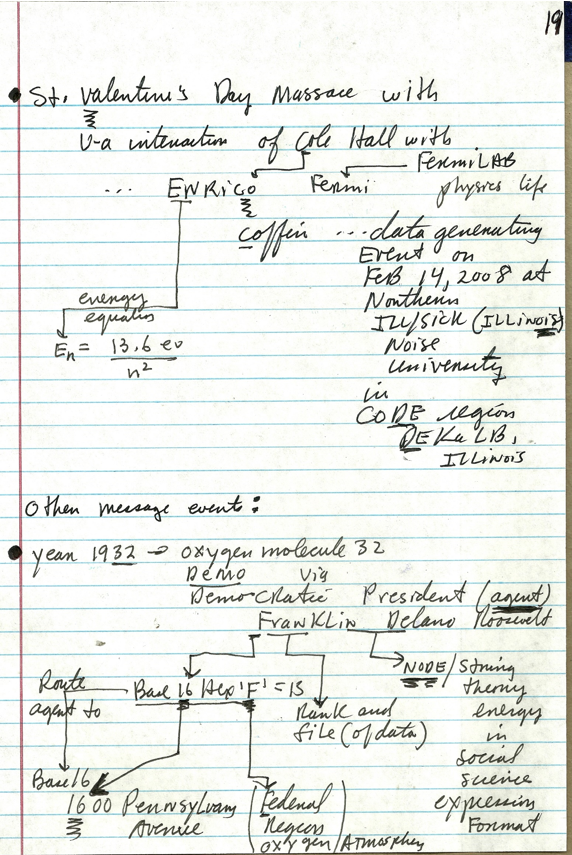 19
• St. Valentine's Day Massace with
V-a interaction of Cole Hall with
FermiLAB
... ENRico Fermi physics life
coffin ... data generating
Event on
FeB 14, 2008 at
Northern
ILL/sick (ILLinois)
Noise
University
in
CODE region
DEKaLB,
ILLinois
energy
equation
En = 13.6 ev
n²
Other message events:
• year 1932 → oxygen molecule 32
Demo via
Democratic President (agent)
FranKLin Delano Roosevelt
Route
agent to
Base 16 Hex 'F' = 15
Rank and
file (of data)
NODE/String
theory
energy
in
social
science
expression
Format
Base 16
1600 Pennsylvania
Avenue
(Federal
Region
oxygen/Atmosphere)